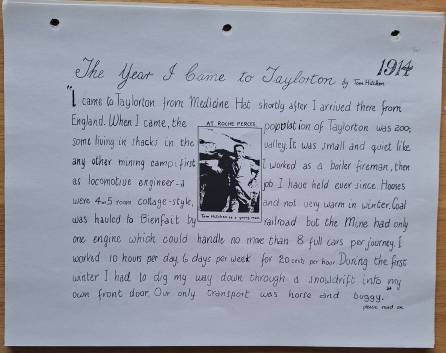 1914
The Year I Came to Taylorton by Tom Hitchen
"I came to Taylorton from Medicine Hat shortly after I arrived there from
England. When I came, the population of Taylorton was 200;
some living in shacks in the valley. It was small and quiet like
any other mining camp. First I worked as a boiler fireman, then
as locomotive engineer - a job I have held ever since. Houses
were 4-5 room cottage-style, and not very warm in winter. Coal
was hauled to Bienfait by railroad but the Mine had only
one engine which could handle no more than 8 full cars per journey. I
worked 10 hours per day 6 days per week for 20 cents per hour. During the first
winter I had to dig my way down through a snowdrift into my
own front door. Our only transport was horse and buggy.
please read on.
AT ROCHE PERCEE
Tom Hitchen as a young man.